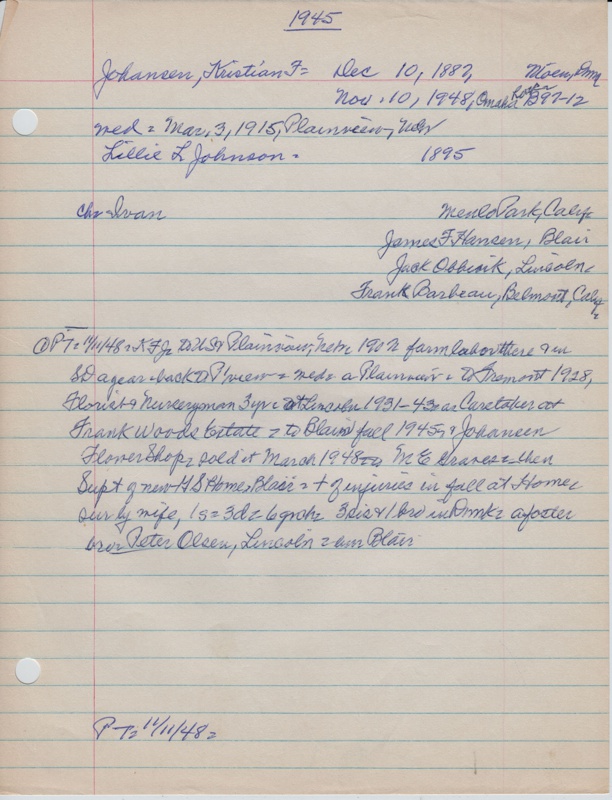 1945
Johansen, Kristian F= Dec 10, 1882, Moen, Dmk
Nov. 10, 1948, Omaha B97-12
med = Mar, 3, 1915, Plainview, Neb
Lillie L Johnson = 1895
ch= Ivan Menlo Park, Calif
James F Hansen, Blair
Jack Obbink, Lincoln
Frank Barbeau, Belmont, Calif
PT= 11/11/48 = KFJ to US Plainview, Neb 190 farm labor there & in
SD a year = back to P'view = med = a Plainview = to Fremont 1928,
Florist & Nurseryman 3 yr = at Lincoln 1931-43 as Caretaker at
Frank Woods Estate = to Blair fall 1945 = Johansen
Flower Shop, sold it March 1948 to M E Graves = then
Supt of new H S Home, Blair = + of injuries in fall at Home
sur by wife, 1s = 3d = 6 grch = 3 sis & 1 bro in Dmk = a foster
bro Peter Olsen, Lincoln = bur Blair
PT= 11/11/48=